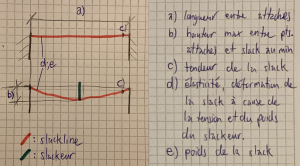 a)
c)
d,e
b)
c)
: slackline
: slackeur
a) longueur entre attaches
b) hauteur max entre pts
attaches et slack au min
c) tendeur de la slack
d) élasticité, déformation de
la slack à cause de
la tension et du poids
du slackeur.
e) poids de la slack